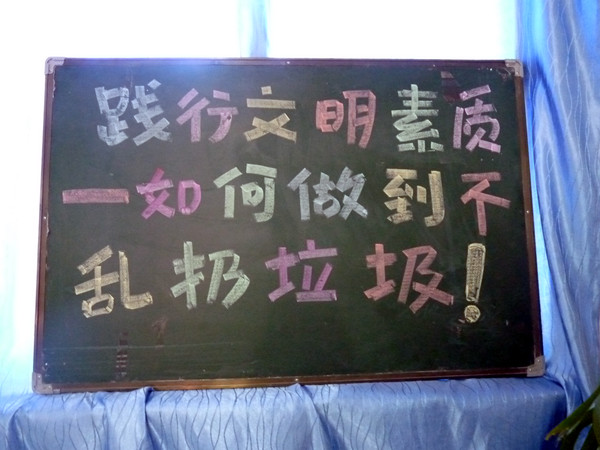 践行文明素质
一如何做到不
乱扔垃圾！